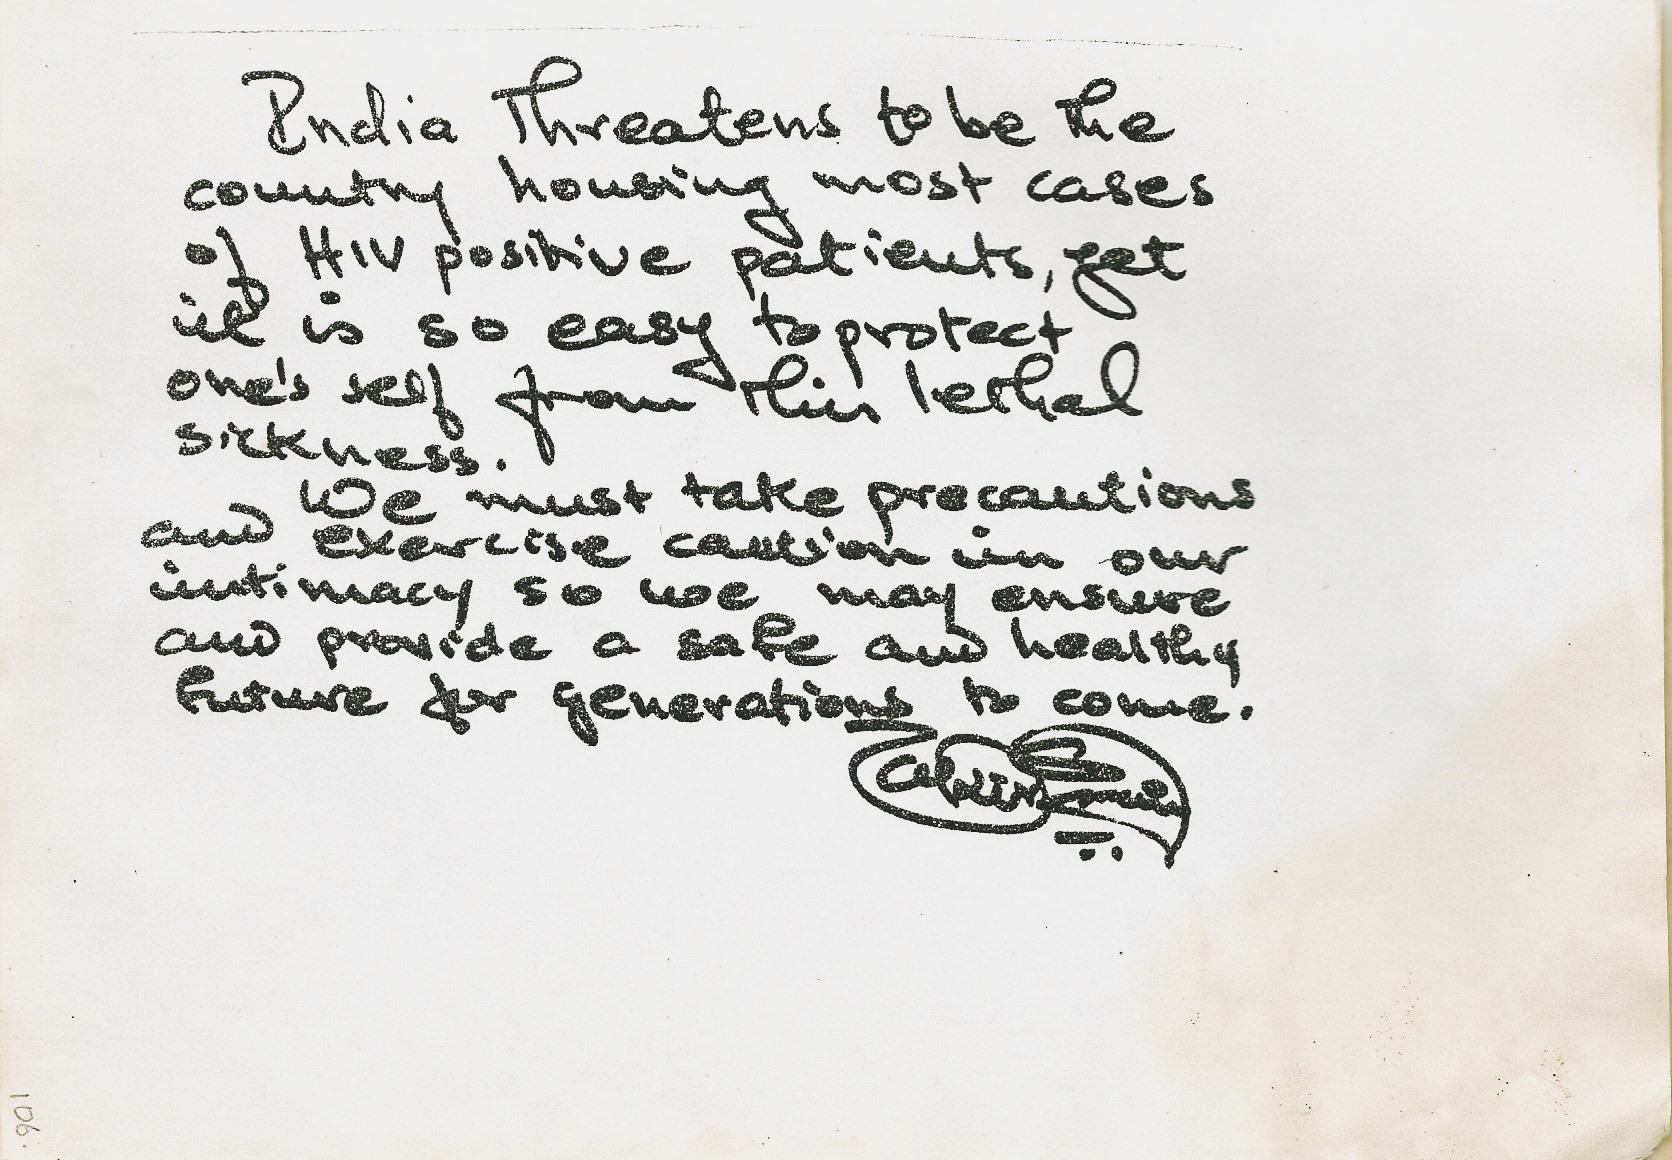 India Threatens to be the
country housing most cases
of HIV positive patients, yet
it is so easy to protect
one's self from this lethal
sickness.
We must take precautions
and exercise caution in our
intimacy so we may ensure
and provide a safe and healthy
future for generations to come.
106.